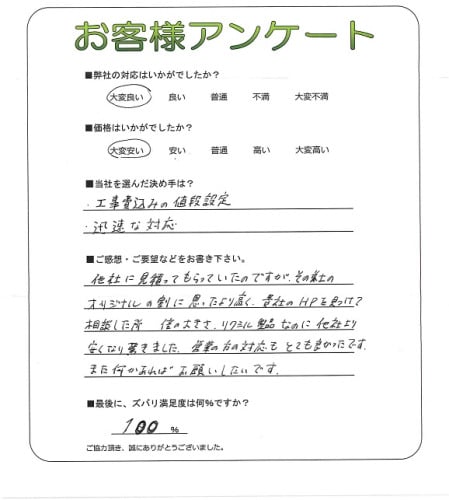 お客様アンケート
■弊社の対応はいかがでしたか？
大変良い 良い 普通 不満 大変不満
■価格はいかがでしたか？
大変安い 安い 普通 高い 大変高い
■当社を選んだ決め手は？
・工事費込みの値段設定
・迅速な対応
■ご感想・ご要望などをお書き下さい。
他社に見積ってもらっていたのですが、その会社の
オリジナルの割に思ったより高く、貴社のHPを見つけて
相談した所 倍の大きさ、リクシル製品なのに他社より
安くなり驚きました。営業の方の対応もとても良かったです。
また何かあればお願いしたいです。
■最後に、ズバリ満足度は何%ですか？
100 %
ご協力頂き、誠にありがとうございました。